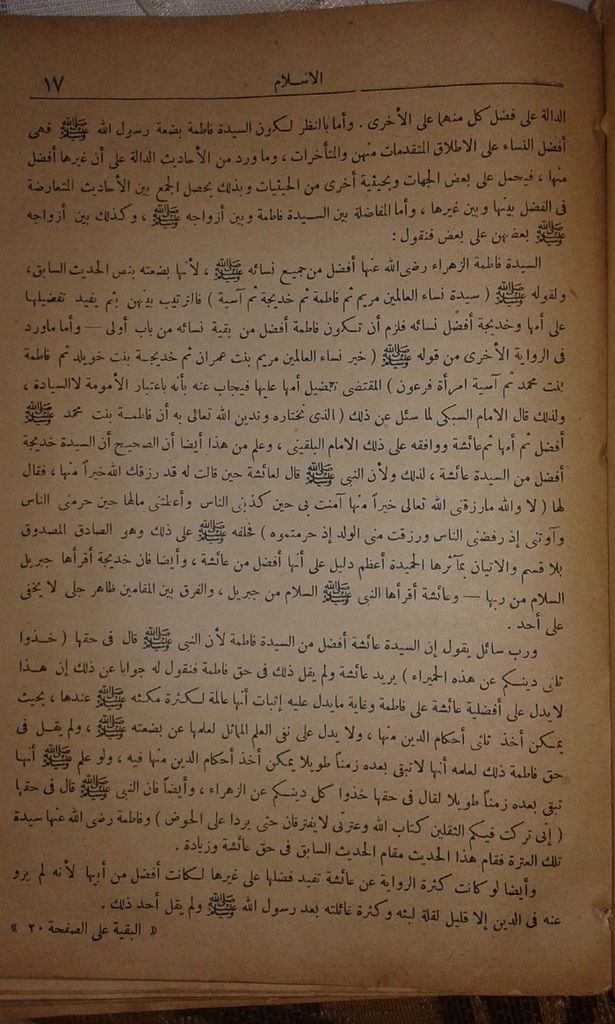 الاسلام ١٧
الدالة على فضل كل منهما على الأخرى . وأما بالنظر لكون السيدة فاطمة بضعة رسول الله ﷺ فهى
أفضل النساء على الاطلاق المتقدمات منهن والمتأخرات ، وما ورد من الأحاديث الدالة على أن غيرها أفضل
منها ، فيحمل على بعض الجهات وبحيثية أخرى من الحيثيات وبذلك يحصل الجمع بين الأحاديث المتعارضة
فى الفضل بينها وبين غيرها ، وأما المفاضلة بين السيدة فاطمة وبين أزواجه ﷺ ، وكذلك بين أزواجه
ﷺ بعضهن على بعض فنقول :
السيدة فاطمة الزهراء رضى الله عنها أفضل من جميع نسائه ﷺ ، لأنها بضعته بنص الحديث السابق ،
ولقوله ﷺ ( سيدة نساء العالمين مريم ثم فاطمة ثم خديجة ثم آسية ) فالترتيب بينهن بثم يفيد تفضيلها
على أمها وخديجة أفضل نسائه فلزم أن تكون فاطمة أفضل من بقية نسائه من باب أولى — وأما ماورد
فى الرواية الأخرى من قوله ﷺ ( خير نساء العالمين مريم بنت عمران ثم خديجة بنت خويلد ثم فاطمة
بنت محمد ثم آسية امرأة فرعون ) المقتضى تفضيل أمها عليها فيجاب عنه بأنه باعتبار الأمومة لا السيادة ،
ولذلك قال الامام السبكى لما سئل عن ذلك ( الذى نختاره وندين الله تعالى به أن فاطمة بنت محمد ﷺ
أفضل ثم أمها ثم عائشة ووافقه على ذلك الامام البلقينى ، وعلم من هذا أيضا أن الصحيح أن السيدة خديجة
أفضل من السيدة عائشة ، لذلك ولأن النبى ﷺ قال لعائشة حين قالت له قد رزقك الله خيراً منها ، فقال
لها ( لا والله مارزقنى الله تعالى خيراً منها آمنت بى حين كذبنى الناس وأعطتنى مالها حين حرمنى الناس
وآوتنى إذ رفضنى الناس ورزقت منى الولد إذ حرمتموه ) فحلفه ﷺ على ذلك وهو الصادق المصدوق
بلا قسم والاتيان بمآثرها الحميدة أعظم دليل على أنها أفضل من عائشة ، وأيضا فان خديجة أقرأها جبريل
السلام من ربها — وعائشة أقرأها النبى ﷺ السلام من جبريل ، والفرق بين المقامين ظاهر جلى لا يخفى
على أحد .
ورب سائل يقول إن السيدة عائشة أفضل من السيدة فاطمة لأن النبى ﷺ قال فى حقها ( خذوا
ثلثى دينكم عن هذه الحميراء ) يريد عائشة ولم يقل ذلك فى حق فاطمة فنقول له جوابا عن ذلك إن هذا
لا يدل على أفضلية عائشة على فاطمة وغاية مايدل عليه إثبات أنها عالمة لكثرة مكثه ﷺ عندها ، بحيث
يمكن أخذ ثلثى أحكام الدين منها ، ولا يدل على نفى العلم المماثل لعلمها عن بضعته ﷺ ، ولم يقل فى
حق فاطمة ذلك لعلمه أنها لا تبقى بعده زمناً طويلا يمكن أخذ أحكام الدين منها فيه ، ولو علم ﷺ أنها
تبقى بعده زمناً طويلا لقال فى حقها خذوا كل دينكم عن الزهراء ، وأيضاً فان النبى ﷺ قال فى حقها
( إنى تركت فيكم الثقلين كتاب الله وعترتى لا يفترقان حتى يردا على الحوض ) وفاطمة رضى الله عنها سيدة
تلك العترة فقام هذا الحديث مقام الحديث السابق فى حق عائشة وزيادة .
وأيضا لو كانت كثرة الرواية عن عائشة تفيد فضلها على غيرها لكانت أفضل من أبيها لأنه لم يرو
عنه فى الدين إلا قليل لقلة لبثه وكثرة غائلته بعد رسول الله ﷺ ولم يقل أحد ذلك .
« البقية على الصفحة ٢٠ »